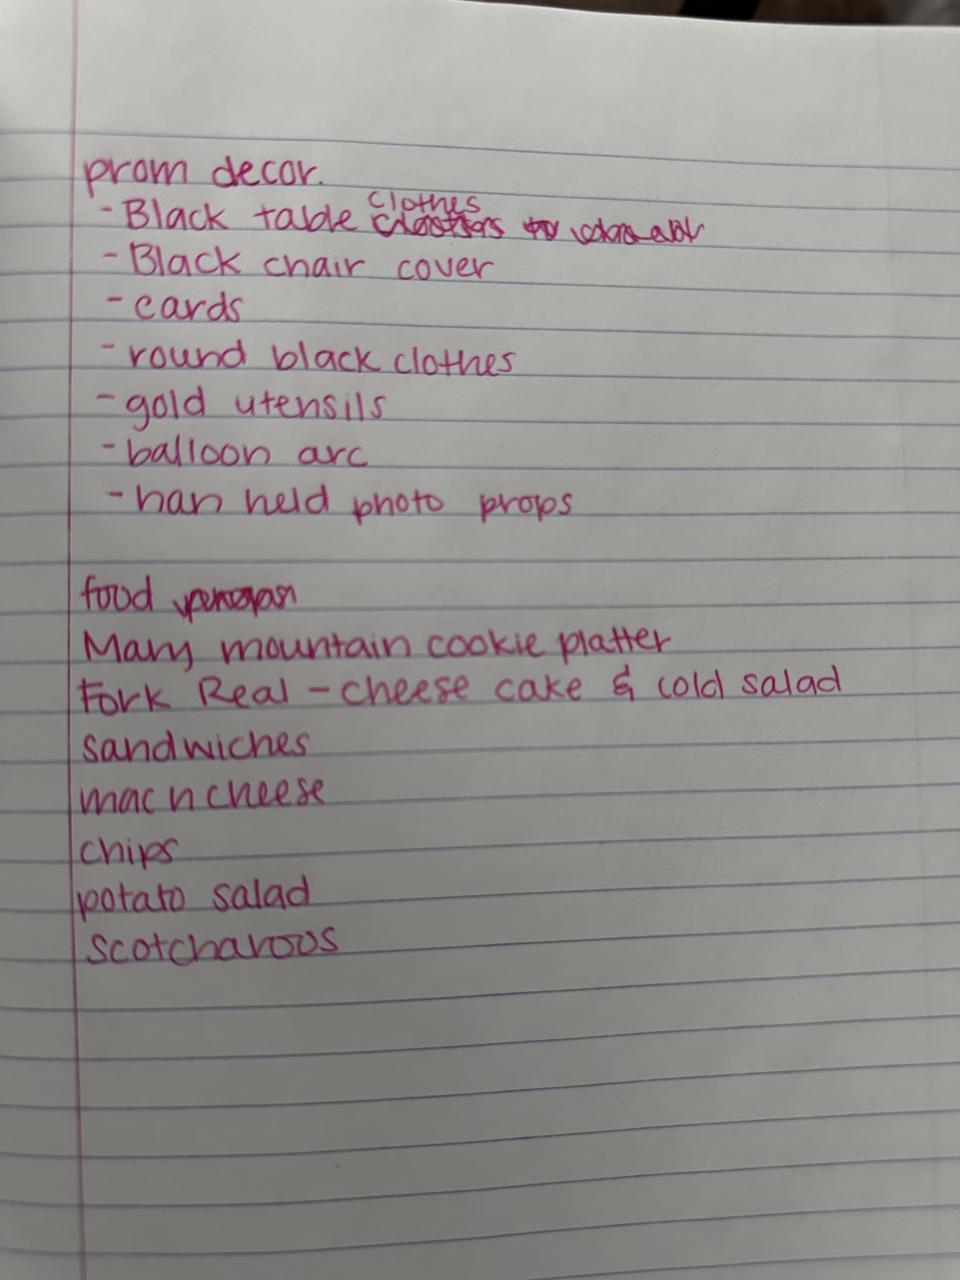 prom decor.
- Black table clothes
- Black chair cover
- cards
- round black clothes
- gold utensils
- balloon arc
- han held photo props
food
Many mountain cookie platter
Fork Real - cheese cake & cold salad
sandwiches
mac n cheese
chips
potato salad
scotcharoos